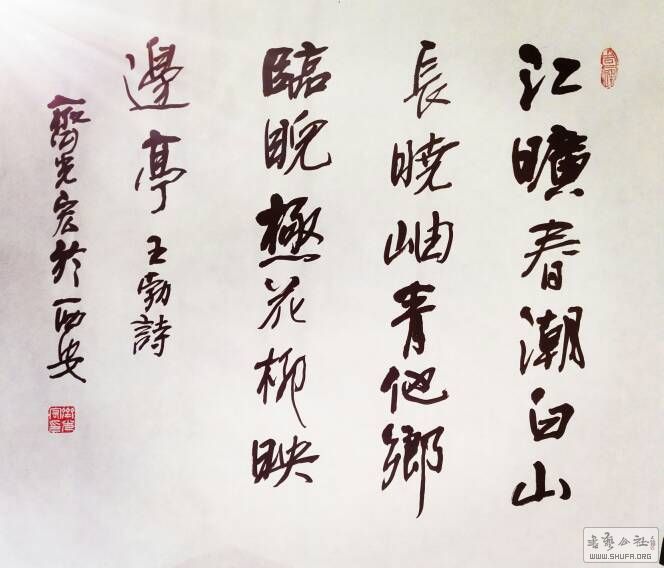 江曠春潮白山
長曉岫青他鄉
臨睨極花柳映
邊亭 王勃詩
齊光宏於西安
书艺公社
WWW.SHUFA.ORG